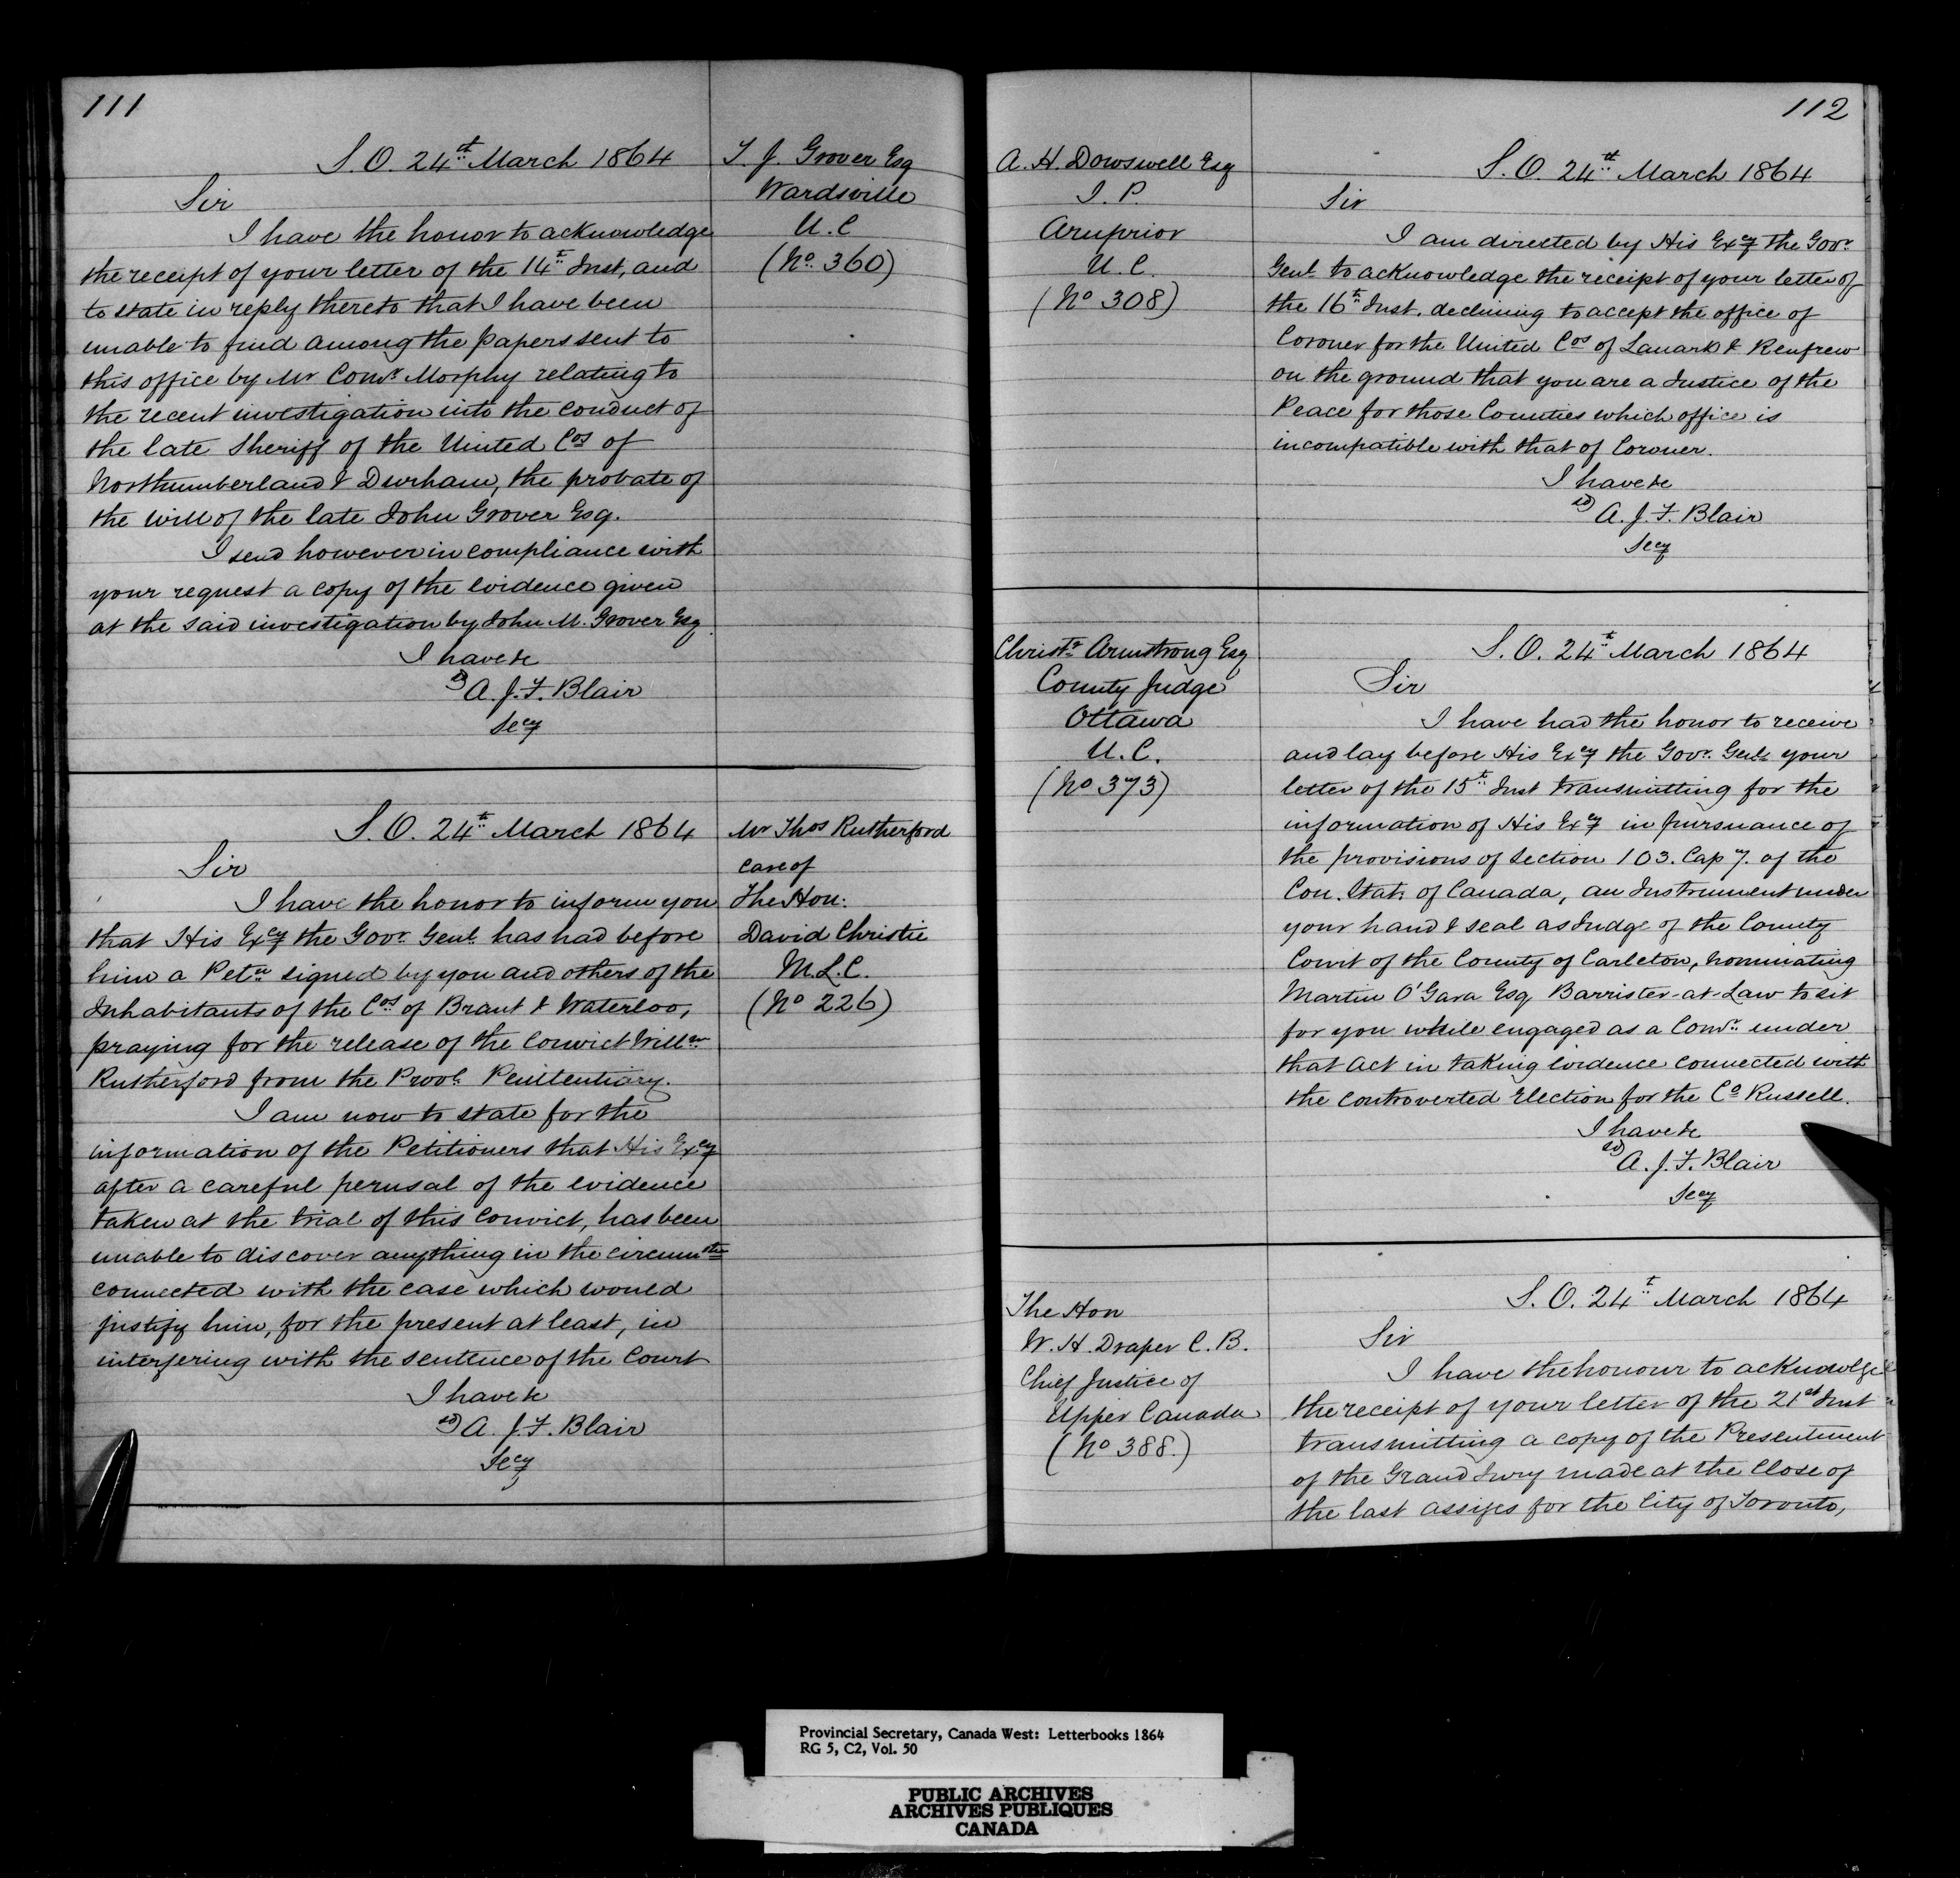 111
S. O. 24th March 1864
Sir
I have the honor to acknowledge
the receipt of your letter of the 14th Inst, and
to state in reply thereto that I have been
unable to find among the papers sent to
this office by Mr Comr Morphy relating to
the recent investigation into the conduct of
the late Sheriff of the United Cos of
Northumberland & Durham, the probate of
the will of the late John Grover Esq.
I send however in compliance with
your request a copy of the evidence given
at the said investigation by John M. Grover Esq
I have &c
sd) A. J. F. Blair
Secy
T. J. Grover Esq
Wardsville
U. C
(No. 360)
S. O. 24th March 1864
Sir
I have the honor to inform you
that His Excy the Govr Genl has had before
him a Petn signed by you and others of the
Inhabitants of the Cos of Brant & Waterloo,
praying for the release of the convict Willm
Rutherford from the Provl Penitentiary.
I am now to state for the
information of the Petitioners that His Excy
after a careful perusal of the evidence
taken at the trial of this convict, has been
unable to discover anything in the circumsts
connected with the case which would
justify him, for the present at least, in
interfering with the sentence of the Court
I have &c
sd) A. J. F. Blair
Secy
Mr Thos Rutherford
care of
The Hon.
David Christie
M.L.C.
(No 226)
112
A. H. Dowswell Esq
J. P.
Arnprior
U. C.
(No 308)
S. O. 24th March 1864
Sir
I am directed by His Excy the Govr
Genl to acknowledge the receipt of your letter of
the 16th Inst. declining to accept the office of
Coroner for the United Cos of Lanark & Renfrew
on the ground that you are a Justice of the
Peace for those Counties which office is
incompatible with that of Coroner.
I have &c
sd) A. J. F. Blair
Secy
Christr Armstrong Esq
County Judge
Ottawa
U. C.
(No 373)
S. O. 24th March 1864
Sir
I have had the honor to receive
and lay before His Excy the Govr Genl your
letter of the 15th Inst transmitting for the
information of His Excy in pursuance of
the provisions of Section 103. Cap 7. of the
Con. Stats of Canada, an Instrument under
your hand & seal as Judge of the County
Court of the County of Carleton, nominating
Martin O'Gara Esq Barrister-at-Law to sit
for you while engaged as a Comr under
that Act in taking evidence connected with
the controverted Election for the Co Russell.
I have &c
sd) A. J. F. Blair
Secy
The Hon
W. H. Draper C. B.
Chief Justice of
Upper Canada
(No 388.)
S. O. 24th March 1864
Sir
I have the honour to acknowlge
the receipt of your letter of the 21st Inst
transmitting a copy of the Presentment
of the Grand Jury made at the close of
the last assizes for the City of Toronto,
Provincial Secretary, Canada West: Letterbooks 1864
RG 5, C2, Vol. 50
PUBLIC ARCHIVES
ARCHIVES PUBLIQUES
CANADA